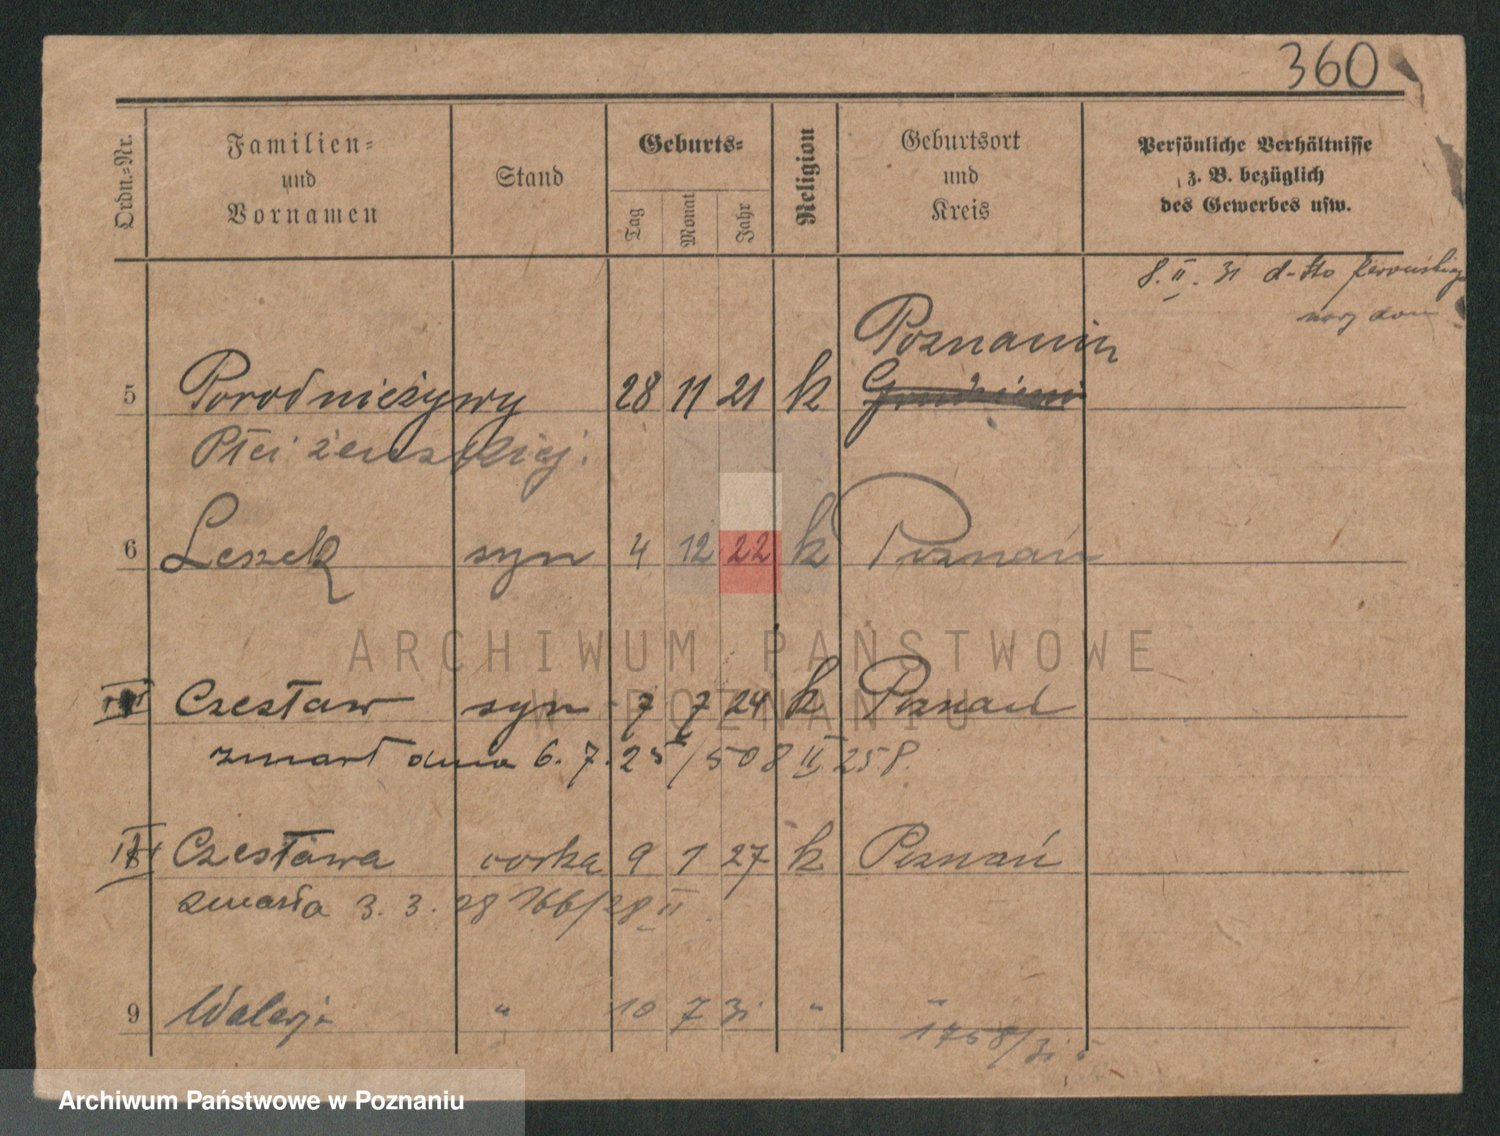 360
Ordn.-Nr.
Familien-
und
Vornamen
Stand
Geburts-
Tag
Monat
Jahr
Religion
Geburtsort
und
Kreis
Persönliche Verhältnisse
z. B. bezüglich
des Gewerbes usw.
8. II. 31
Poznaniu
5 Porod nieżywy 28 11 21 k
Płci żeńskiej.
6 Leszek syn 4 12 22 k Poznań
ARCHIWUM PAŃSTWOWE
W POZNANIU
Czesław syn 7 7 24 k Poznań
zmarł dnia 6.7.25/508 II 258
Czesława córka 9 1 27 k Poznań
zmarła 3.3.28 166/28 II.
9 Walerja " 10 7 31 " "
1758/31
Archiwum Państwowe w Poznaniu